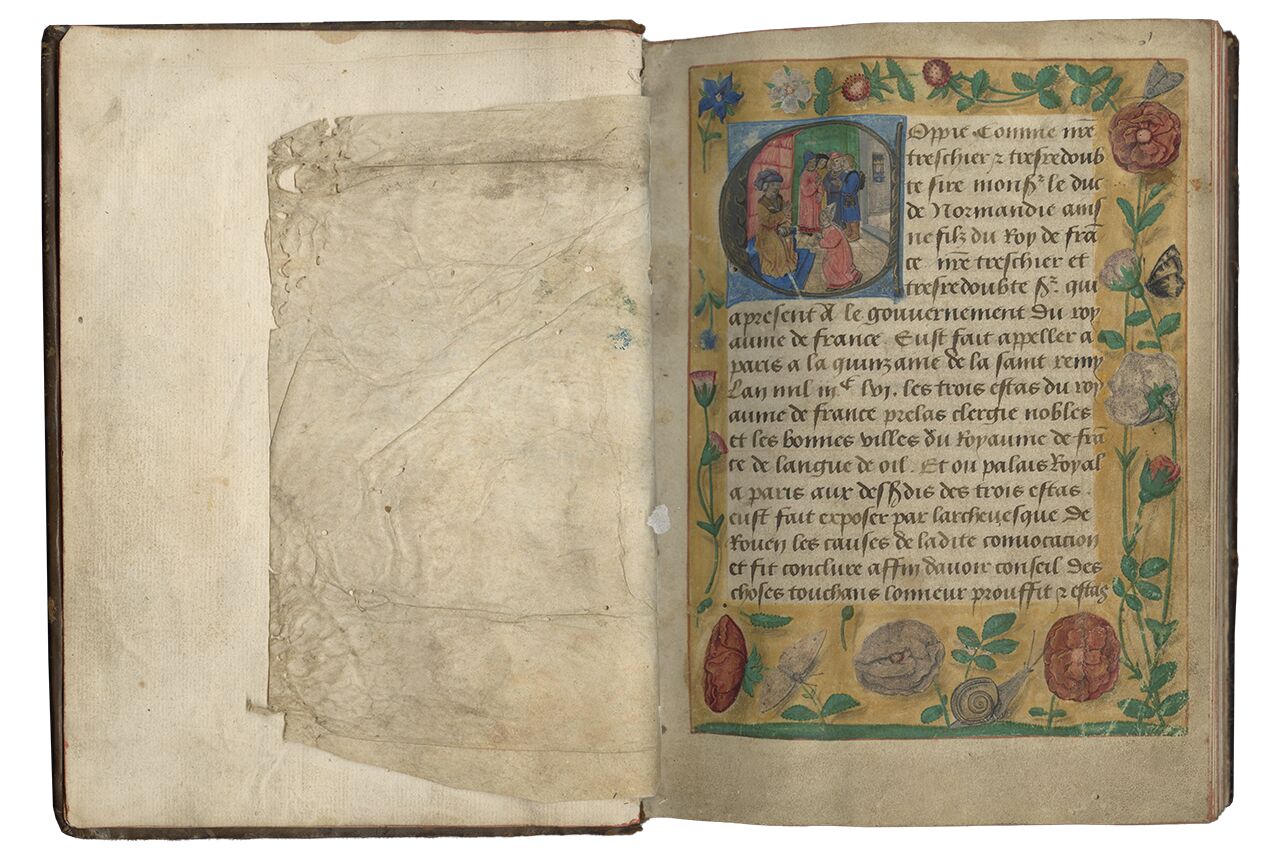 Coppie Comme nre
treschier ⁊ tresredoub
te sire monsr le duc
de Normandie ains
ne filz du Roy de fra
ce nre treschier et
tresredoubte sr qui
apresent A le gouvernement du roy
aume de france Eust fait appeller a
paris a la quinzaine de la saint remy
Lan mil iijc lvj. les trois estas du roy
aume de france prelas clergie nobles
et les bonnes villes du Royaume de fra
ce de langue de oil. Et ou palais Royal
a paris aux desSdis des trois estas.
eust fait exposer par larchevesque de
Rouen les causes de ladite convocation
et fit conclure affin davoir conseil des
choses touchans lonneur prouffit ⁊ estas